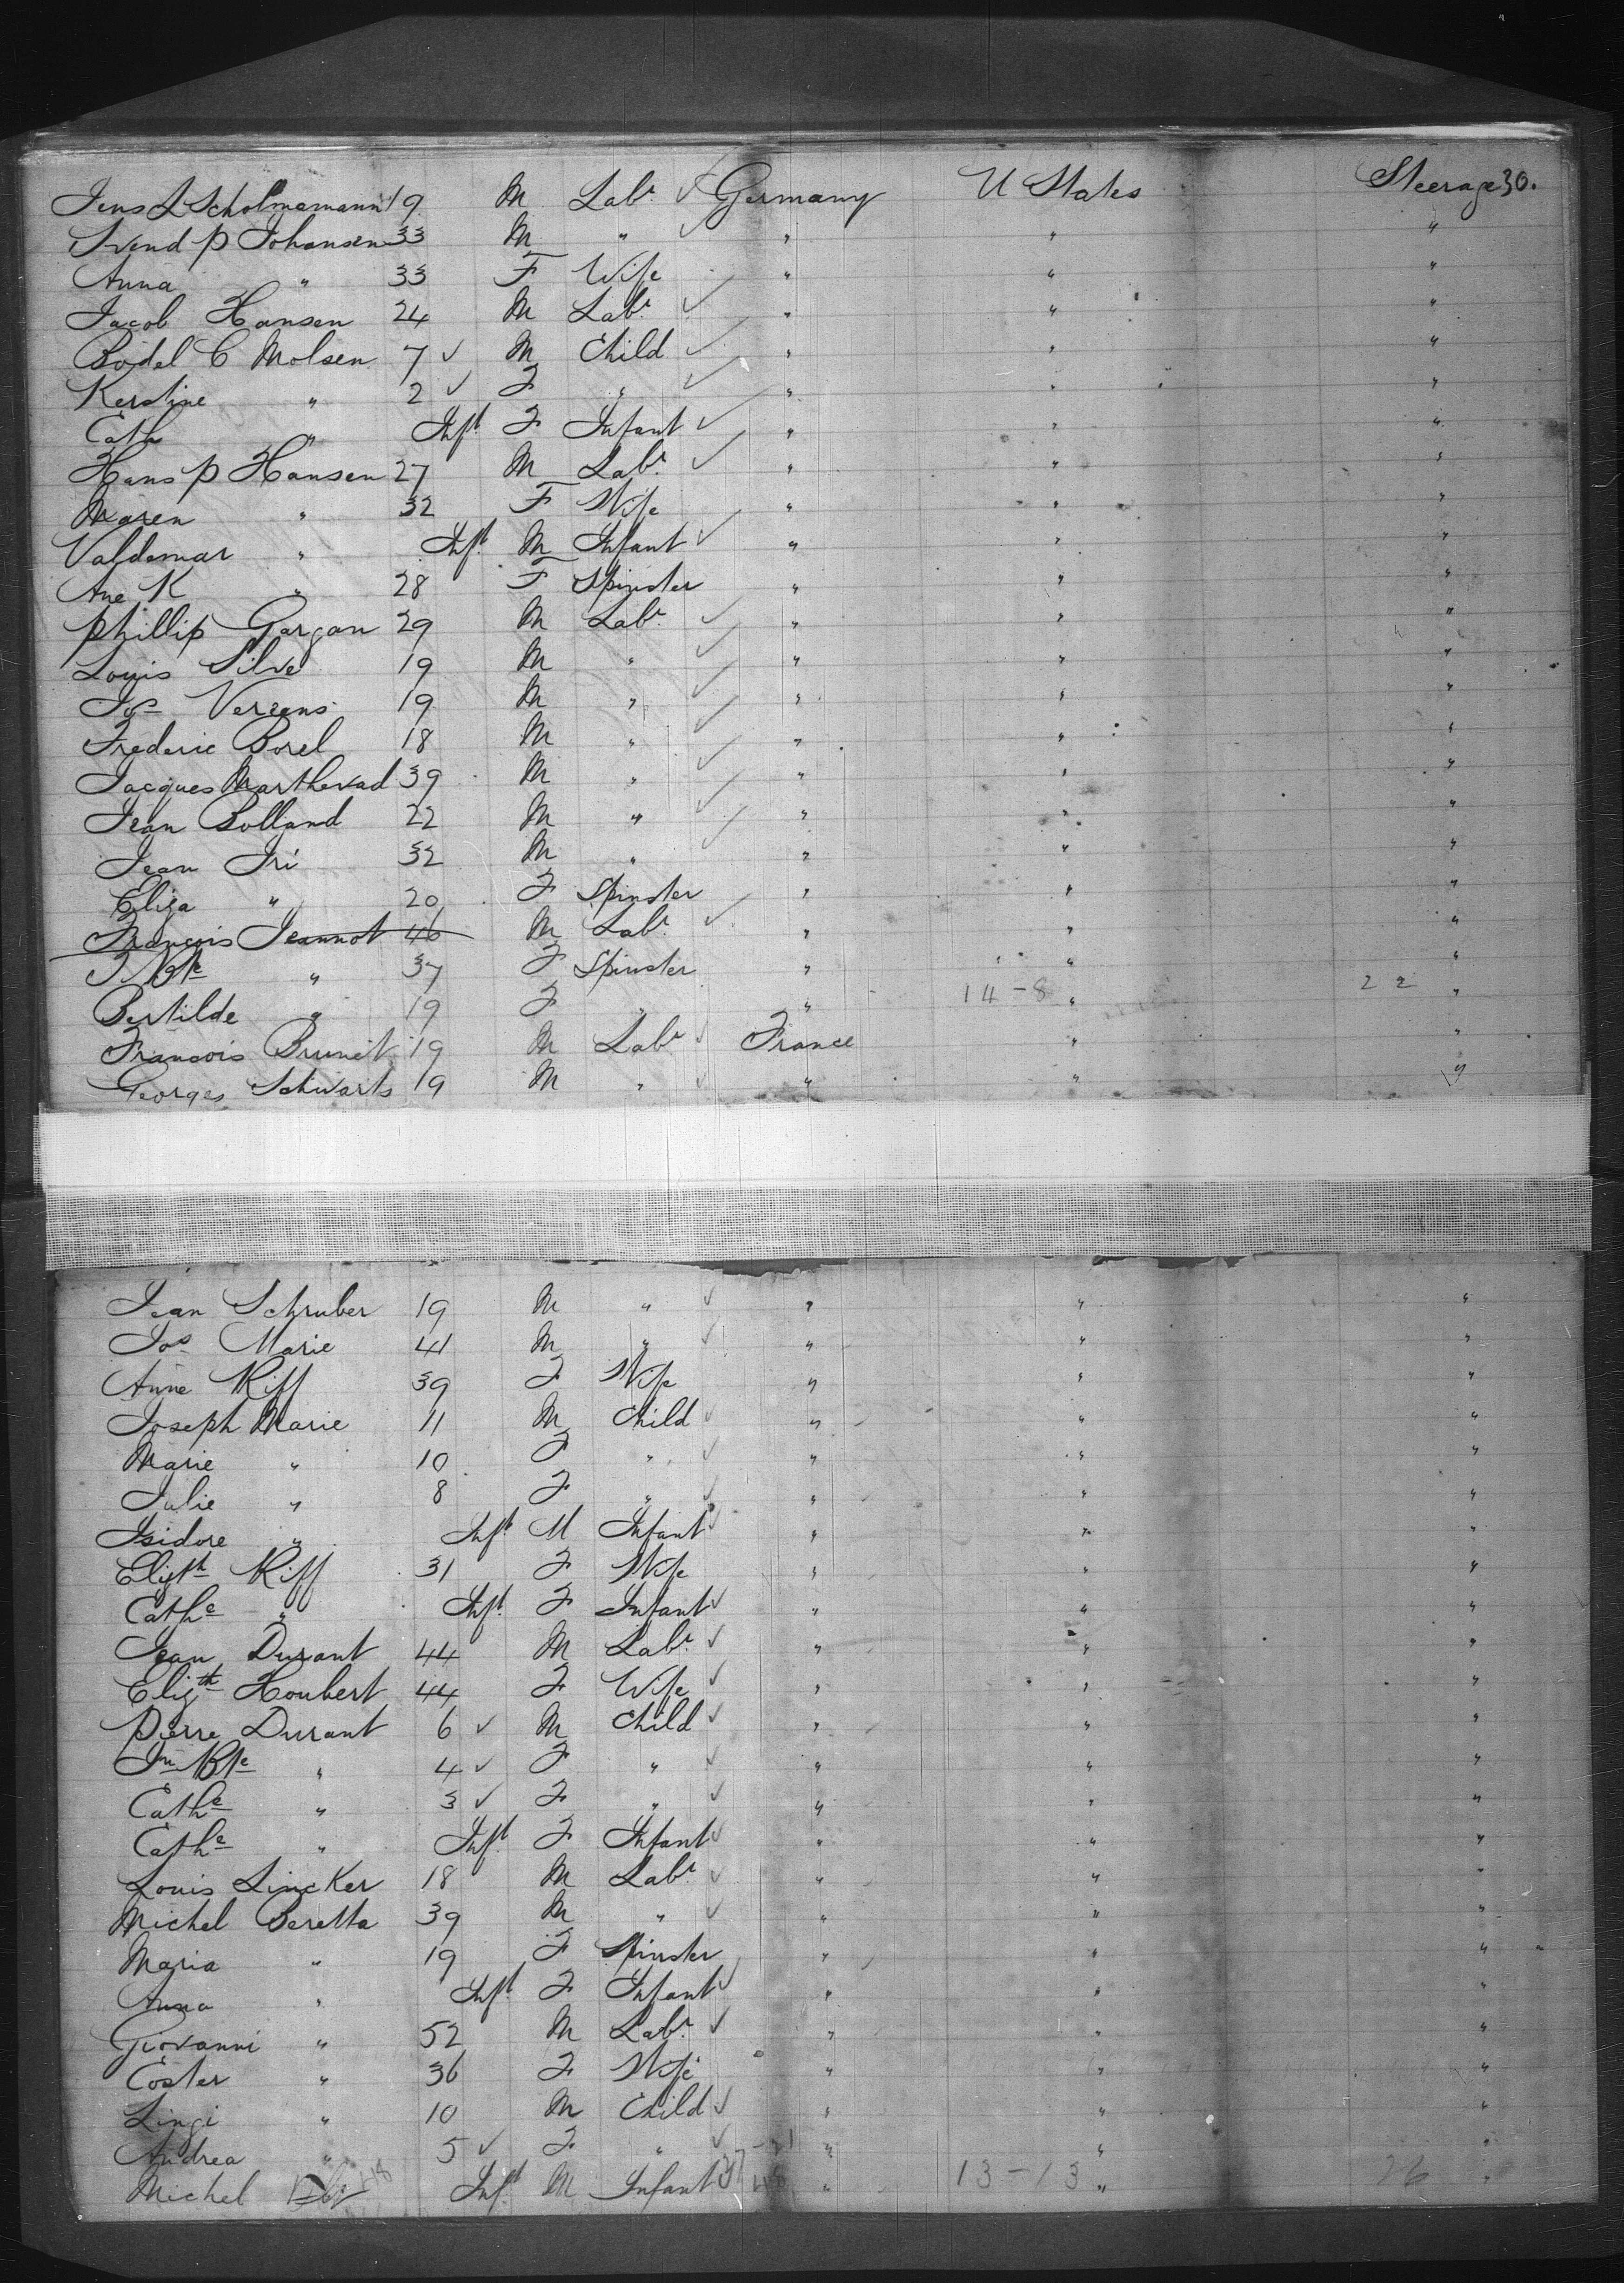 Jens L Scholmamann 19 M Labr ✓ Germany U States Steerage 30.
Svend P Johansen 33 M " ✓ " " "
Anna " 33 F Wife " " "
Jacob Hansen 24 M Labr ✓ " " "
Bodel C Molsen 7 ✓ M Child ✓ " " "
Kerstine " 2 ✓ F " ✓ " " "
Cath " Inft F Infant ✓ " " "
Hans P Hansen 27 M Labr ✓ " " "
Maren " 32 F Wife " " "
Valdemar " Inft M Infant ✓ " " "
Ane K " 28 F Spinster " " "
Phillip Gargan 29 M Labr ✓ " " "
Louis Silve 19 M " ✓ " " "
Jos Versens 19 M " ✓ " " "
Frederic Borel 18 M " ✓ " " "
Jacques Marthevad 39 M " ✓ " " "
Jean Bolland 22 M " ✓ " " "
Jean Iri 32 M " ✓ " " "
Eliza " 20 F Spinster " " "
Francois Jeannot 46 M Labr ✓ " " "
J Bte " 37 F Spinster " " "
Bertilde " 19 F " " 14-8 " 22 "
Francois Brunet 19 M Labr ✓ France " "
Georges Schwarts 19 M " ✓ " " "
Jean Schruber 19 M " ✓ " " "
Jos Marie 41 M " ✓ " " "
Anne Riff 39 F Wife " " "
Joseph Marie 11 M Child ✓ " " "
Marie " 10 F " ✓ " " "
Julie " 8 F " ✓ " " "
Isidore " Inft M Infant ✓ " " "
Elizth Riff 31 F Wife " " "
Cathe " Inft F Infant ✓ " " "
Jean Durant 44 M Labr ✓ " " "
Elizth Houbert 44 F Wife ✓ " " "
Pierre Durant 6 ✓ M Child ✓ " " "
Jn Bte " 4 ✓ F " ✓ " " "
Cathe " 3 ✓ F " ✓ " " "
Cathe " Inft F Infant ✓ " " "
Louis Lincker 18 M Labr ✓ " " "
Michel Beretta 39 M " ✓ " " "
Maria " 19 F Spinster " " "
Anna " Inft F Infant ✓ " " "
Giovanni " 52 M Labr ✓ " " "
Coster " 36 F Wife " " "
Lingi " 10 M Child ✓ " " "
Andrea " 5 ✓ F " ✓ " " "
Michel Inft M Infant ✓ " 13-13 " 26 "